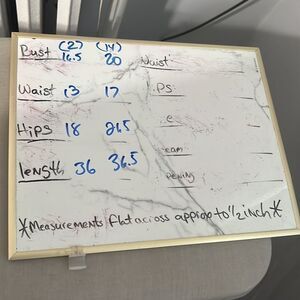 (2) (14)
Bust 16.5 20 Waist
Waist 13 17 PS
Hips 18 21.5 e
length 36 36.5 eam
pening
*Measurements flat across approx to 1/2 inch*